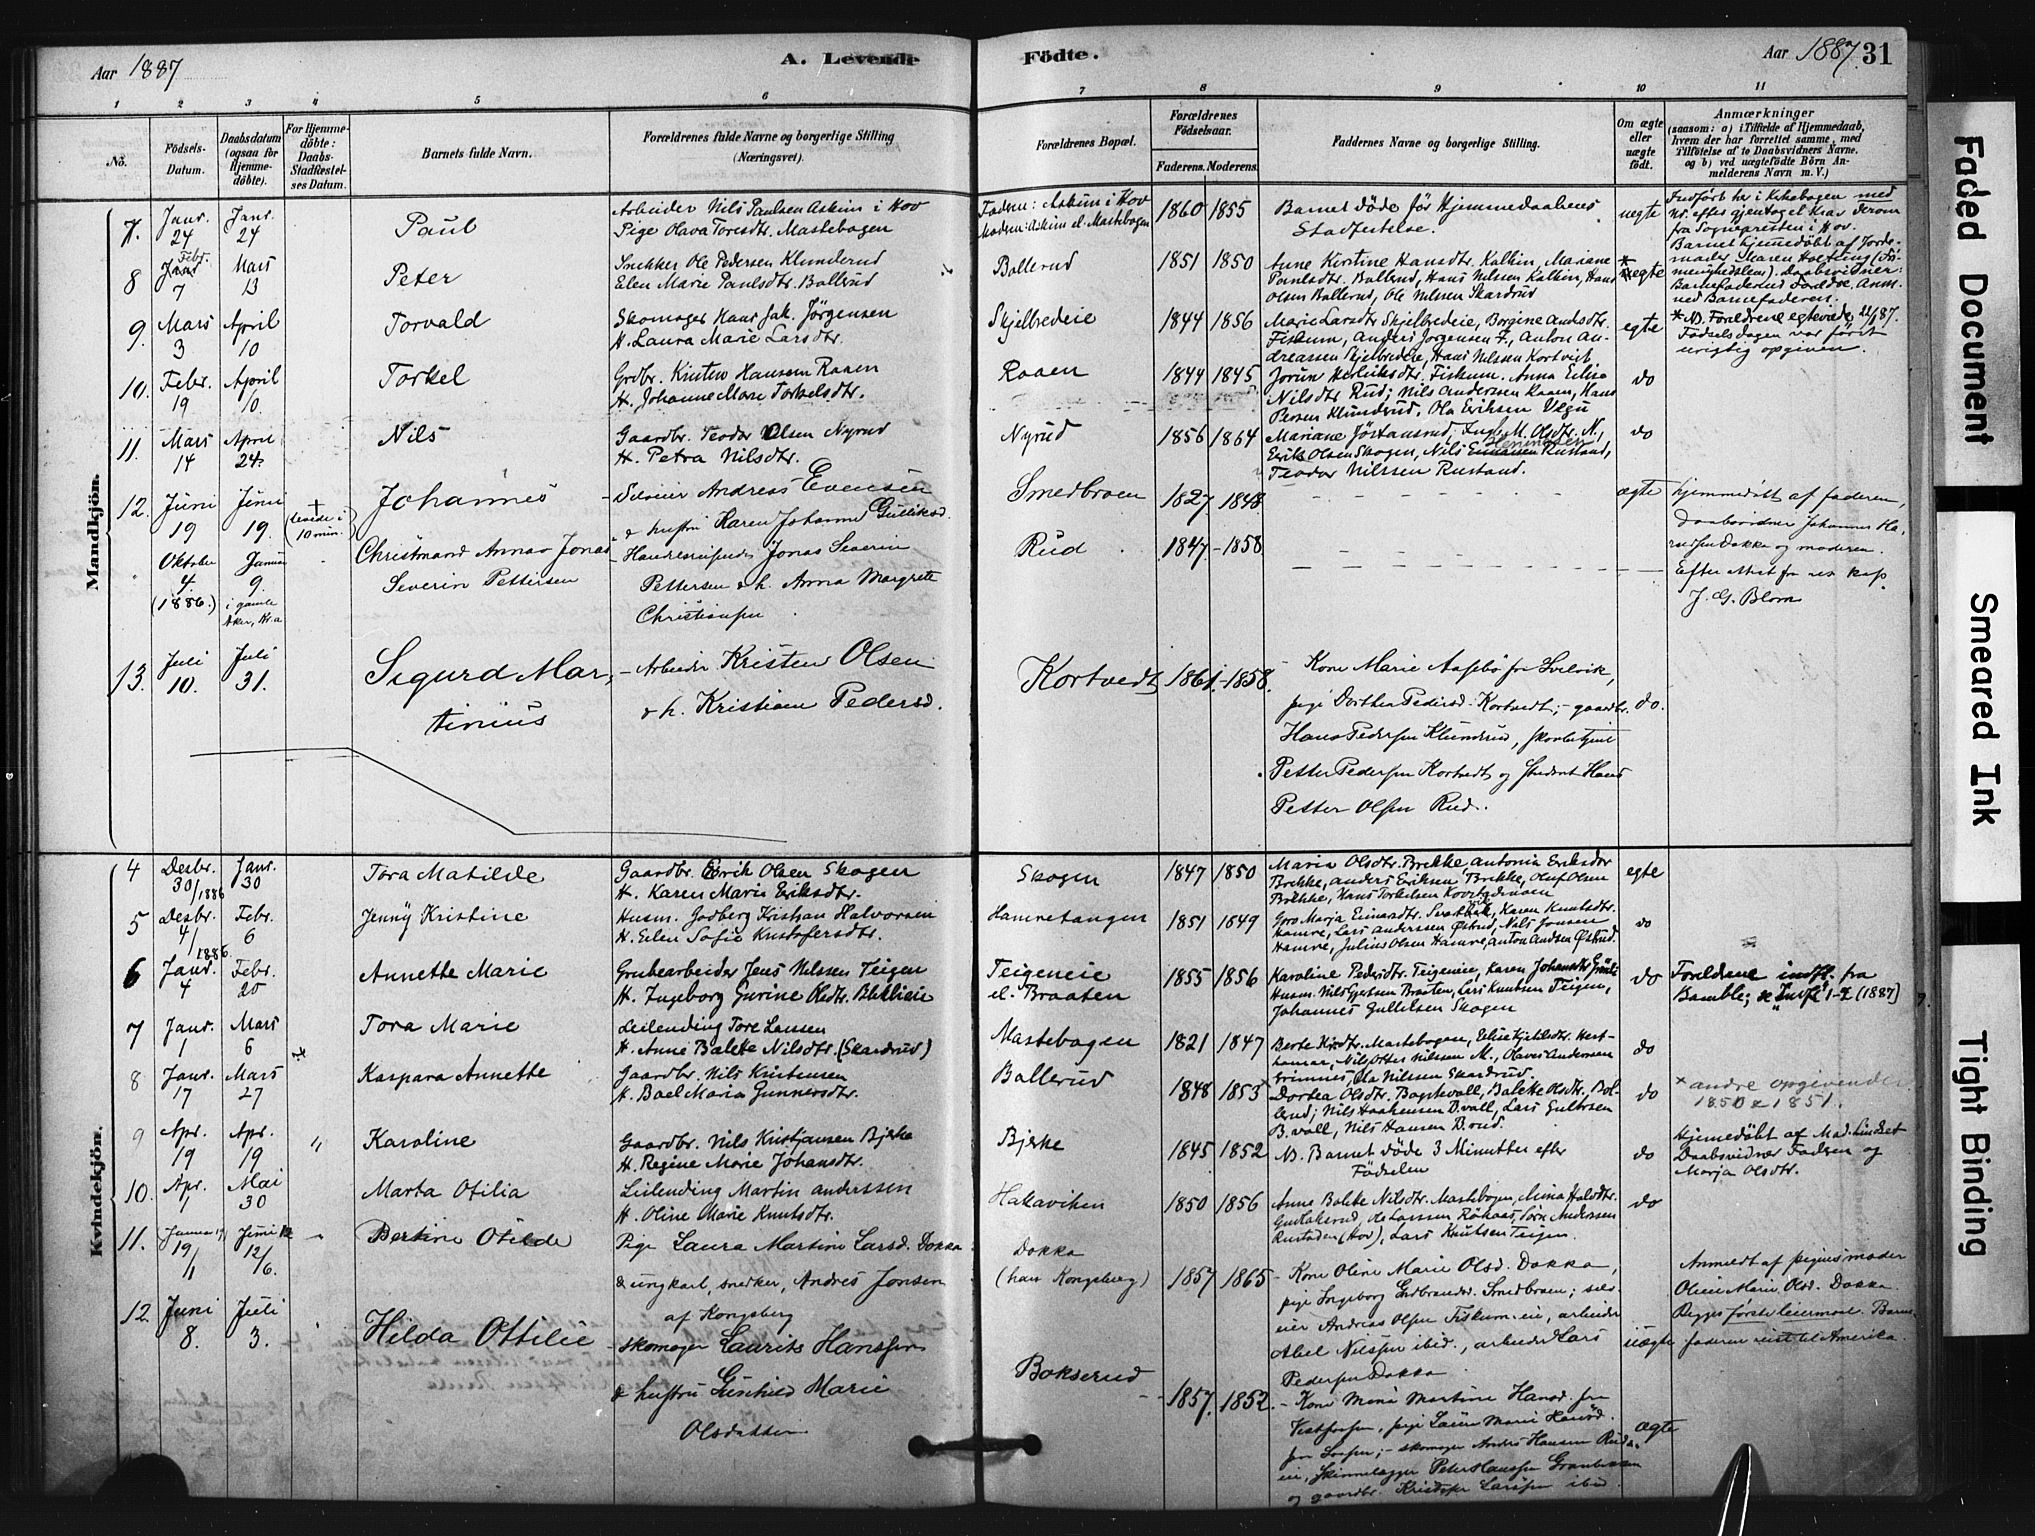 Aar 1887
A. Levende
Födte.
Aar 1887. 31
1 2 3 4 5 6 7 8 9 10 11
No.
Födsels-
Datum.
Daabsdatum
(ogsaa for
Hjemme-
döbte).
For Hjemme-
döbte:
Daabs-
Stadfæstel-
ses Datum.
Barnets fulde Navn.
Forældrenes fulde Navne og borgerlige Stilling
(Næringsvei).
Forældrenes Bopæl.
Forældrenes
Födselsaar.
Faderens. Moderens.
Faddernes Navne og borgerlige Stilling.
Om ægte
eller
uægte
födt.
Anmærkninger
(saasom: a) i Tilfælde af Hjemmedaab,
hvem der har forrettet samme, med
Tilföielse af to Daabsvidners Navne,
og b) ved uægtefödte Börn An-
melderens Navn m. V.)
Mandkjön.
7. Janr. 24 Janr. 24 Paul
Arbeider Nils Paulsen Askim i Hov
Pige Olava Toresdtr. Mastebogen
Faderen: Askim i Hov
Moderen: Askim el. Mastebogen
1860 1855
Barnet döde för Hjemmedaabens
Stadfestelse.
uegte
Indfört her i Kirkebogen med
No. efter gjentaget Krav derom
fra Sognepresten i Hov.
Barnet hjemmedöbt af Jordemoder
Daabsvidner:
Barnefaderens Foreldre. Anm.
ved Barnefaderen.
8 Febr. 7 Mars 13 Peter
Snekker Ole Pedersen Klunderud
Elen Marie Paulsdtr. Bollerud
Bollerud
1851 1850
Anne Kirstine Hansdtr. Kalkin, Mariane
Paulsdtr. Bollerud, Hans Nilssen Kalkin, Hans
Olsen Bollerud, Ole Nilssen Skardrud
* uegte
* NB. Foreldrene egteviede 22/87.
Födselsdagen var först
urigtig opgiven.
9. Mars 3 April 10 Torvald
Skomager Hans Jak. Jörgensen
H. Laura Marie Larsdtr.
Skjelbredeie
1844 1856
Marie Larsdtr Skjelbredeie, Borgine Andsdtr.
Fiskum, Anders Jörgensen F., Anton An-
dreassen Skjelbredeie, Hans Nilssen Kortvet
egte
10. Febr. 19 April 10. Torkel
Grdbr. Kristen Hansen Raaen
H. Johanne Marie Torkelsdtr.
Raaen
1844 1845
Jorun Fiskum. Anna Elise
Nilsdtr Rud; Nils Anderssen Raaen, Hans
Persen Klunderud, Ola Eriksen Vegu
do
11. Mars 14 April 24. Nils
Gaardbr. Teodor Olsen Nyrud
H. Petra Nilsdtr.
Nyrud
1856 1864
Mariane Jöstansrud, Ingb. M. Olsdtr. N.,
Erik Olsen Skogen, Nils Rustand,
Teodor Nilssen Rustand.
do
12. Juni 19 Juni 19. + (levede i 10 min.) Johannes
Andreas Evensen
& hustru Karen Johanne Gulliksd.
Smedbroen
1827 1848
ægte
hjemmedöbt af faderen,
Daabsvidner Johannes
Dokke og moderen.
Oktober 4. (1886.) Januar 9. i gamle Aker, Kr.a
Christmand Annar Jonas
Severin Pettersen
Handelsreisende Jonas Severin
Pettersen & h. Anna Margrete
Christiansen
Rud
1847 - 1858
Efter Attest fra res. kap.
J. G. Blom
13. Juli 10. Juli 31. Sigurd Mar,
tinius
Arbeider Kristen Olsen
& h. Kristiane Pedersd.
Kortvedt
1861. - 1858.
Kone Marie Aasebö fra Svelvik,
pige Dorthea Pedersd. Kortvedt, - gaardbr.
Hans Pedersen Klunderud,
Petter Pedersen Kortvedt og Student Hans
Petter Olsen Rud.
do.
Kvindekjön.
4 Desbr. 30/1886 Janr. 30 Tora Matilde
Gaardbr. Erik Olsen Skogen
H. Karen Marie Eriksdtr.
Skogen
1847 1850
Maria Olsdtr. Brekke, Antonia Eriksdtr
Brekke, Anders Eriksen Brekke, Oluf Olsen
Brekke, Hans Torkelsen
egte
5 Desbr. 4/1886 Febr. 6 Jenny Kristine
Husm. Godberg Kristjan Halvorsen
H. Elen Sofie Kristofersdtr.
Hamretangen
1851 1849
Goro Marja Einarsdtr. Karen Knutsdtr.
Hamre, Lars Anderssen Östrud, Nils Jonssen
Hamre, Julius Olsen Hamre, Anton Andsen Östrud.
do
6 Janr. 4 Febr. 20 Annette Marie
Grubearbeider Jens Nilssen Teigen
H. Ingeborg Gurine Olsdtr.
Teigeneie
el. Braaten
1855 1856
Karoline Pedersdtr. Teigeneie, Karen Johansdtr
Husm. Nils Braaten, Lars Knutsen Teigen,
Johannes Gulliksen Skogen
do
Foreldrene indfl. fra
Bamble; se Indfl. 1-2 (1887)
7 Janr. 1 Mars 6 Tora Marie
Leilending Tore Larssen
H. Anne Bolette Nilsdtr. (Skardrud)
Mastebogen
1821 1847
Berte Mastebogen,
Nils Otter Nilssen M., Olaves Anderssen
Grimnes, Ola Nilssen Skardrud.
do
8 Janr. 17 Mars 27 Kaspara Annette
Gaardbr. Nils Kristensen
H. Boel Maria Gunnersdtr.
Bollerud
1848 1853
Dortea Olsdtr. Bolette Olsdtr. Bol-
lerud; Nils Lars
B.vall, Nils Hansen
do
* andre opgivender
1850 & 1851.
9 Apr. 19 Apr. 19 Karoline
Gaardbr. Nils Kristjansen Bjerke
H. Regine Marie Johansdtr.
Bjerke
1845 1852
NB. Barnet döde 3 Minutter efter
Födselen
do
Hjemedöbt af Mad. Lindset
Daabsvidner Faderen og
Marja Olsdtr.
10. Apr. 1 Mai 30 Marta Otilia
Leilending Martin Anderssen
H. Oline Marie Knutsdtr.
Hakaviken
1850 1856
Anne Bolette Nilsdtr. Mastebogen, Mina
Ole Larssen Röhaas, Tore Anderssen
Rustaden (Hov), Lars Knutsen Teigen.
do
11. Januar 19/1 Juni 12/6. Bertine Otilde
Pige Laura Martine Larsd. Dokka
& ungkarl, snedker, Andres Jonsen
af Kongsberg
Dokka
(han Kongsberg)
1857 1865
Kone Oline Marie Olsd. Dokka,
pige Ingeborg Smedbroen;
Andreas Olsen Fiskumeie, arbeider
Abel Nilssen ibid., arbeider Lars
Pedersen Dokka
uægte
Anmeldt af pigens moder
Oline Marie Olsd. Dokka.
Begges förste leiermaal. Barne-
faderen reist til Amerika.
12. Juni 8. Juli 3. Hilda Ottilie
Skomager Laurits Hanssen
& hustru Marie
Olsdatter
Bakserud
1857. 1852.
Kone Mina Martine Hansd. fra
Vestfossen, pige Laura Marie
skomager Andres Hansen
Peter Hanssen
og gaardbr. Kristofer Larssen ibid.
ægte
Faded Document
Smeared Ink
Tight Binding